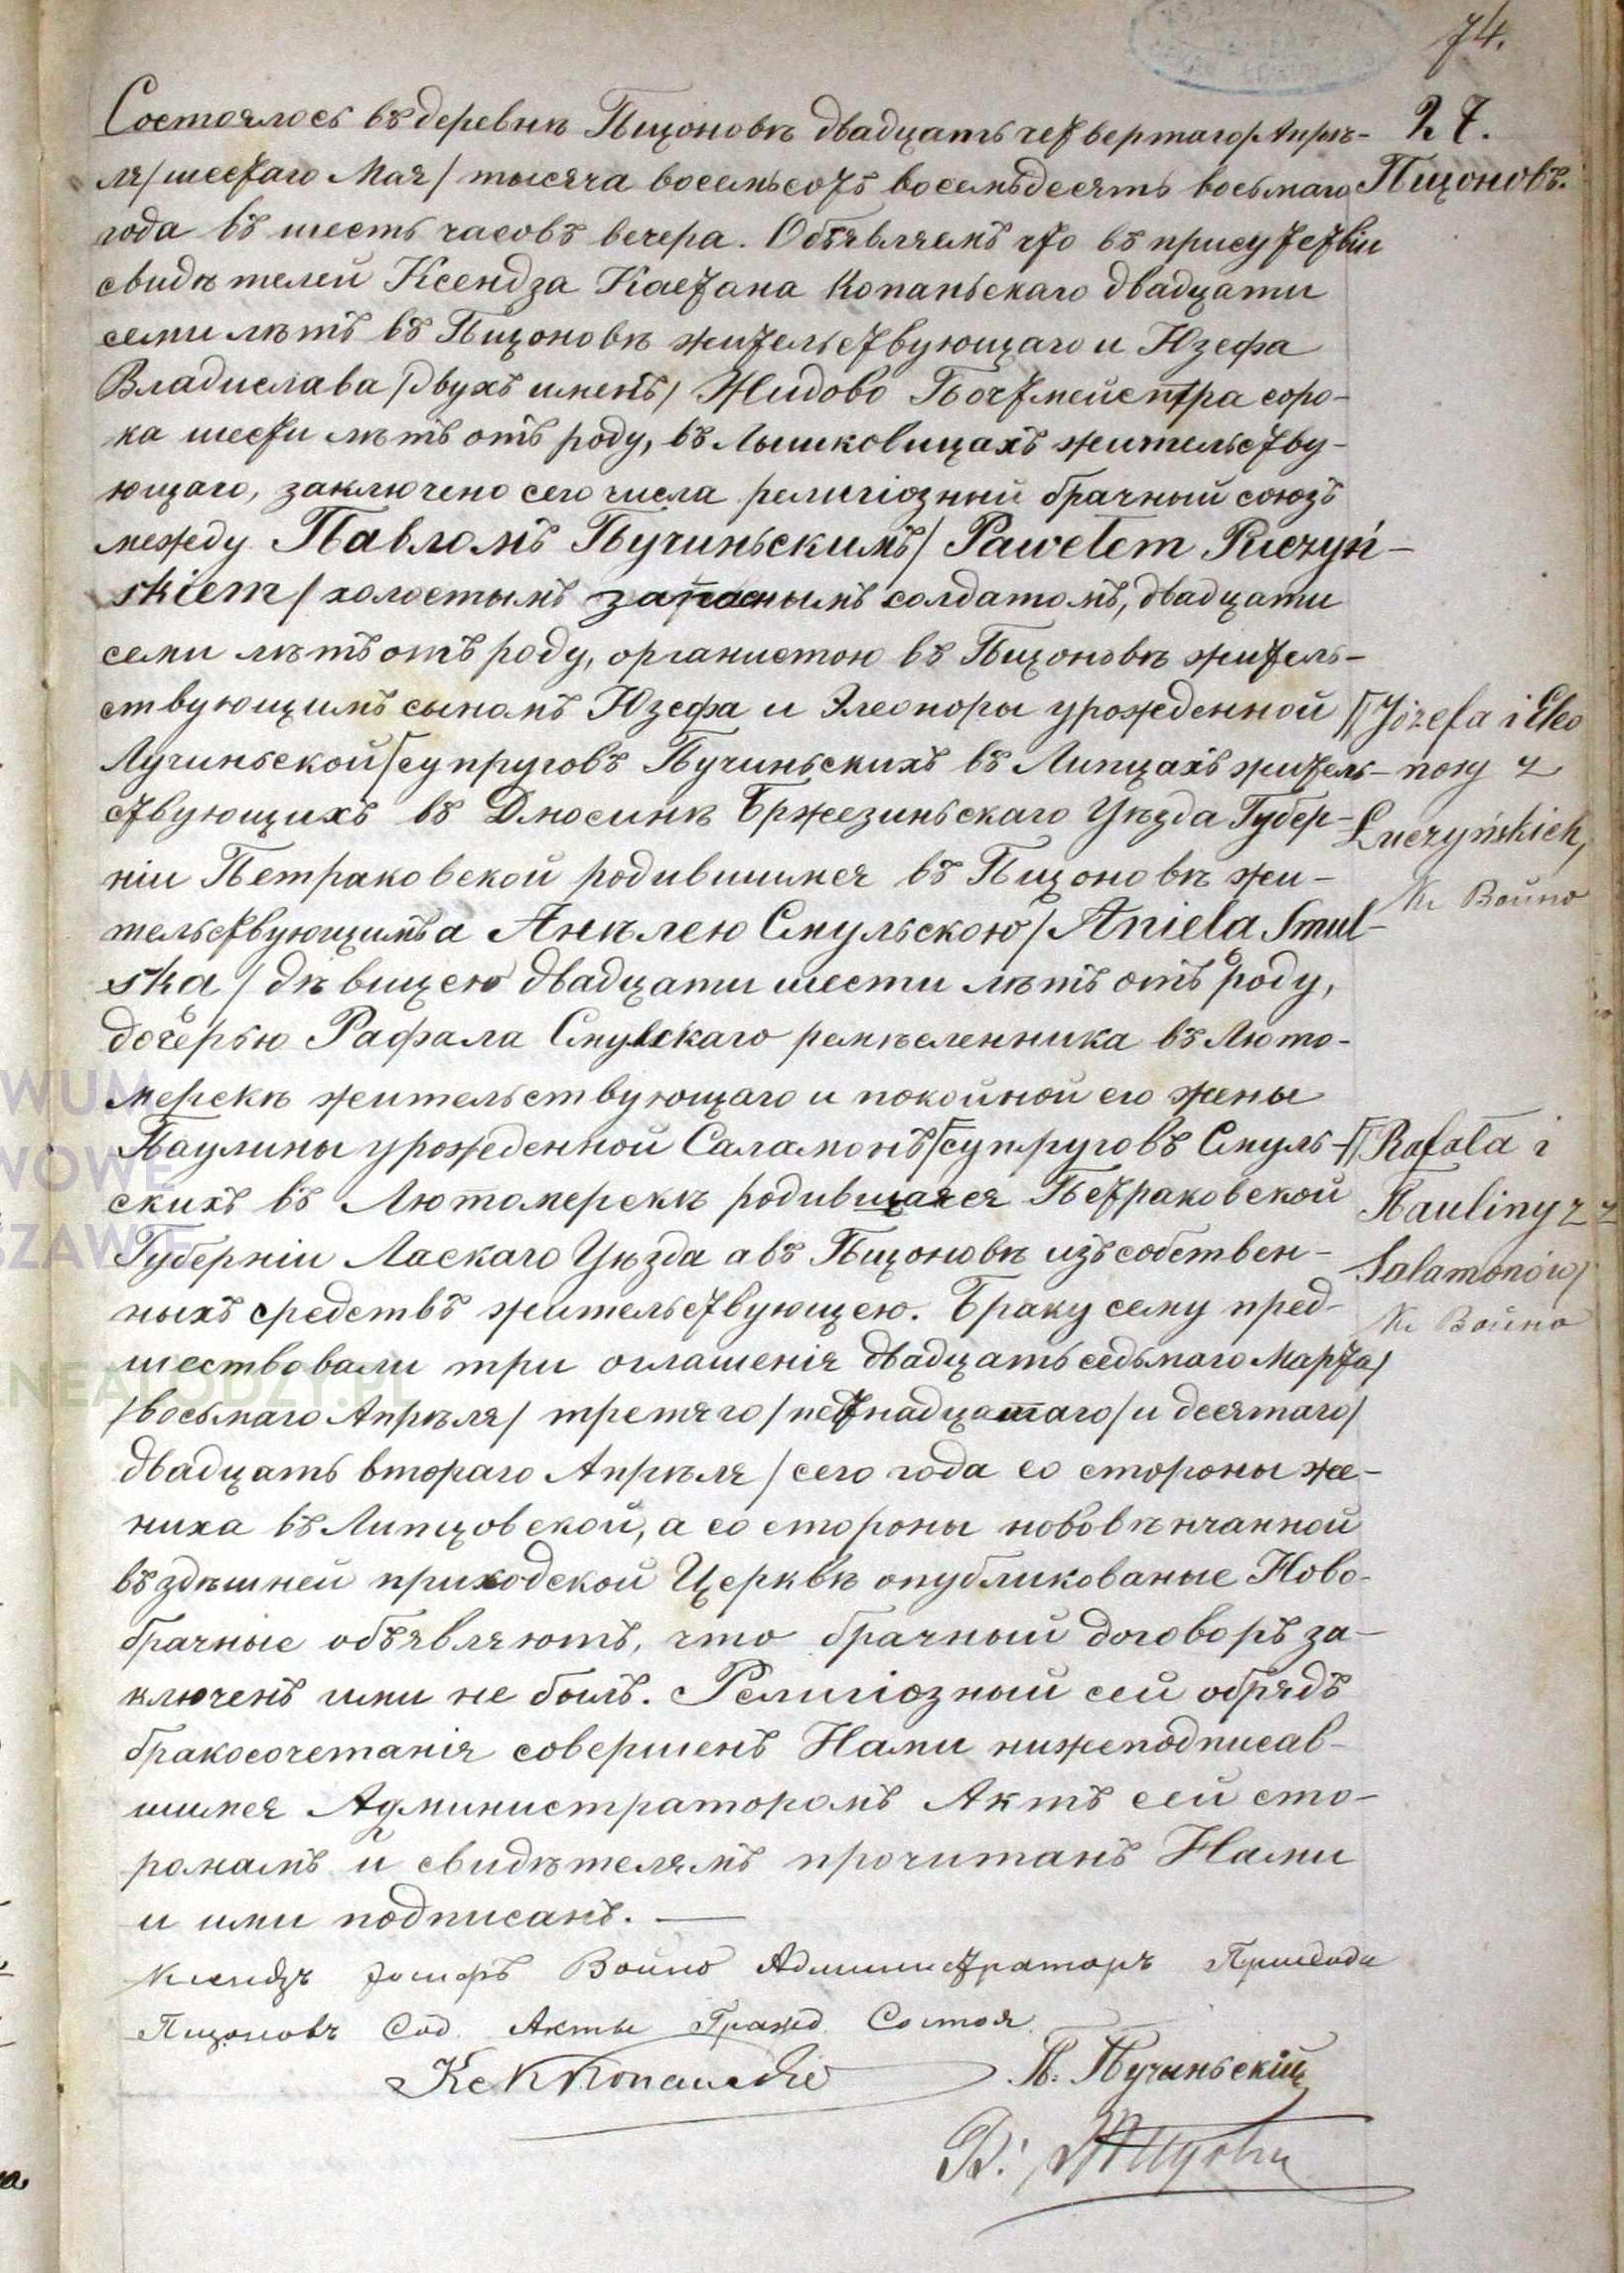 74.
Состоялось въ деревнѣ Пщоновѣ двадцать четвертаго Апрѣ-
27.
ля/шестаго Мая/ тысяча восемьсотъ восемьдесятъ восьмаго
Пщоновъ.
года въ шесть часовъ вечера. Объявляемъ что въ присутствіи
свидѣтелей Ксендза Каетана Копаньскаго двадцати
семи лѣтъ въ Пщоновѣ жительствующаго и Юзефа
Владислава /двухъ именъ/ Жидово Почтмейстра соро-
ка шести лѣтъ отъ роду, въ Лышковицахъ жительству-
ющаго, заключено сего числа религіозный брачный союзъ
между Павломъ Пучиньскимъ/ Pawełem Puczyń-
skiem/ холостымъ запаснымъ солдатомъ, двадцати
семи лѣтъ отъ роду, органистою въ Пщоновѣ житель-
ствующимъ сыномъ Юзефа и Элеоноры урожденной
Józefa i Eleo
Лучиньской супруговъ Пучиньскихъ въ Липцахъ житель-
nory z
ствующихъ въ Дмосинѣ Бржезиньскаго Уѣзда Губер-
Łuczyńskich,
ніи Петраковской родившимся въ Пщоновѣ жи-
Кс Войно
тельствующимъ а Анѣлею Смульскою/ Aniela Smul-
ska/ дѣвицею двадцати шести лѣтъ отъ роду,
дочерью Рафала Смульскаго ремѣсленника въ Люто-
мерскѣ жительствующаго и покойной его жены
Паулины урожденной Саламонъ супруговъ Смуль-
Rafała i
скихъ въ Лютомерскѣ родившаяся Петраковской
Pauliny z
Губерніи Ласкаго Уѣзда а въ Пщоновѣ изъ собствен-
Salamonów/
ныхъ средствъ жительствующею. Браку сему пред-
Кс Войно
шествовали три оглашенія двадцать седьмаго Марта/
/восьмаго Апрѣля/ третяго/ пятнадцатаго/ и десятаго/
двадцать втораго Апрѣля/ сего года со стороны же-
ниха въ Липцовской, а со стороны нововѣнчанной
въ здѣшней приходской Церквѣ опубликованые Ново-
брачные объявляютъ, что брачный договоръ за-
ключенъ ими не былъ. Религіозный сей обрядъ
бракосочетанія совершенъ Нами нижеподписав-
шимся Администраторомъ Актъ сей сто-
ронамъ и свидѣтелямъ прочитанъ Нами
и ими подписанъ.
Ксендзъ Іосифъ Войно Администраторъ Прихода
Пщоновъ Сод. Акты Гражд. Состоя.
П. Пучиньскій